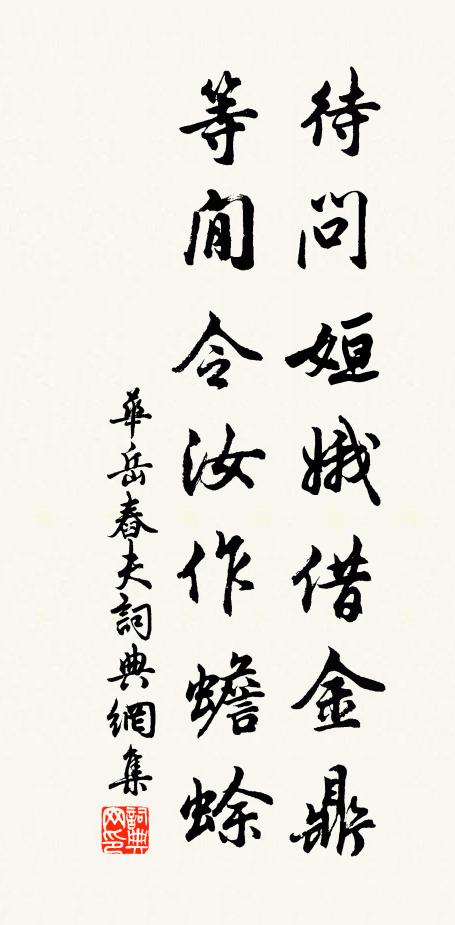 待問姮娥借金鼎
等閒令汝作蟾蜍
華岳舂夫詞典網集
詞典
网印